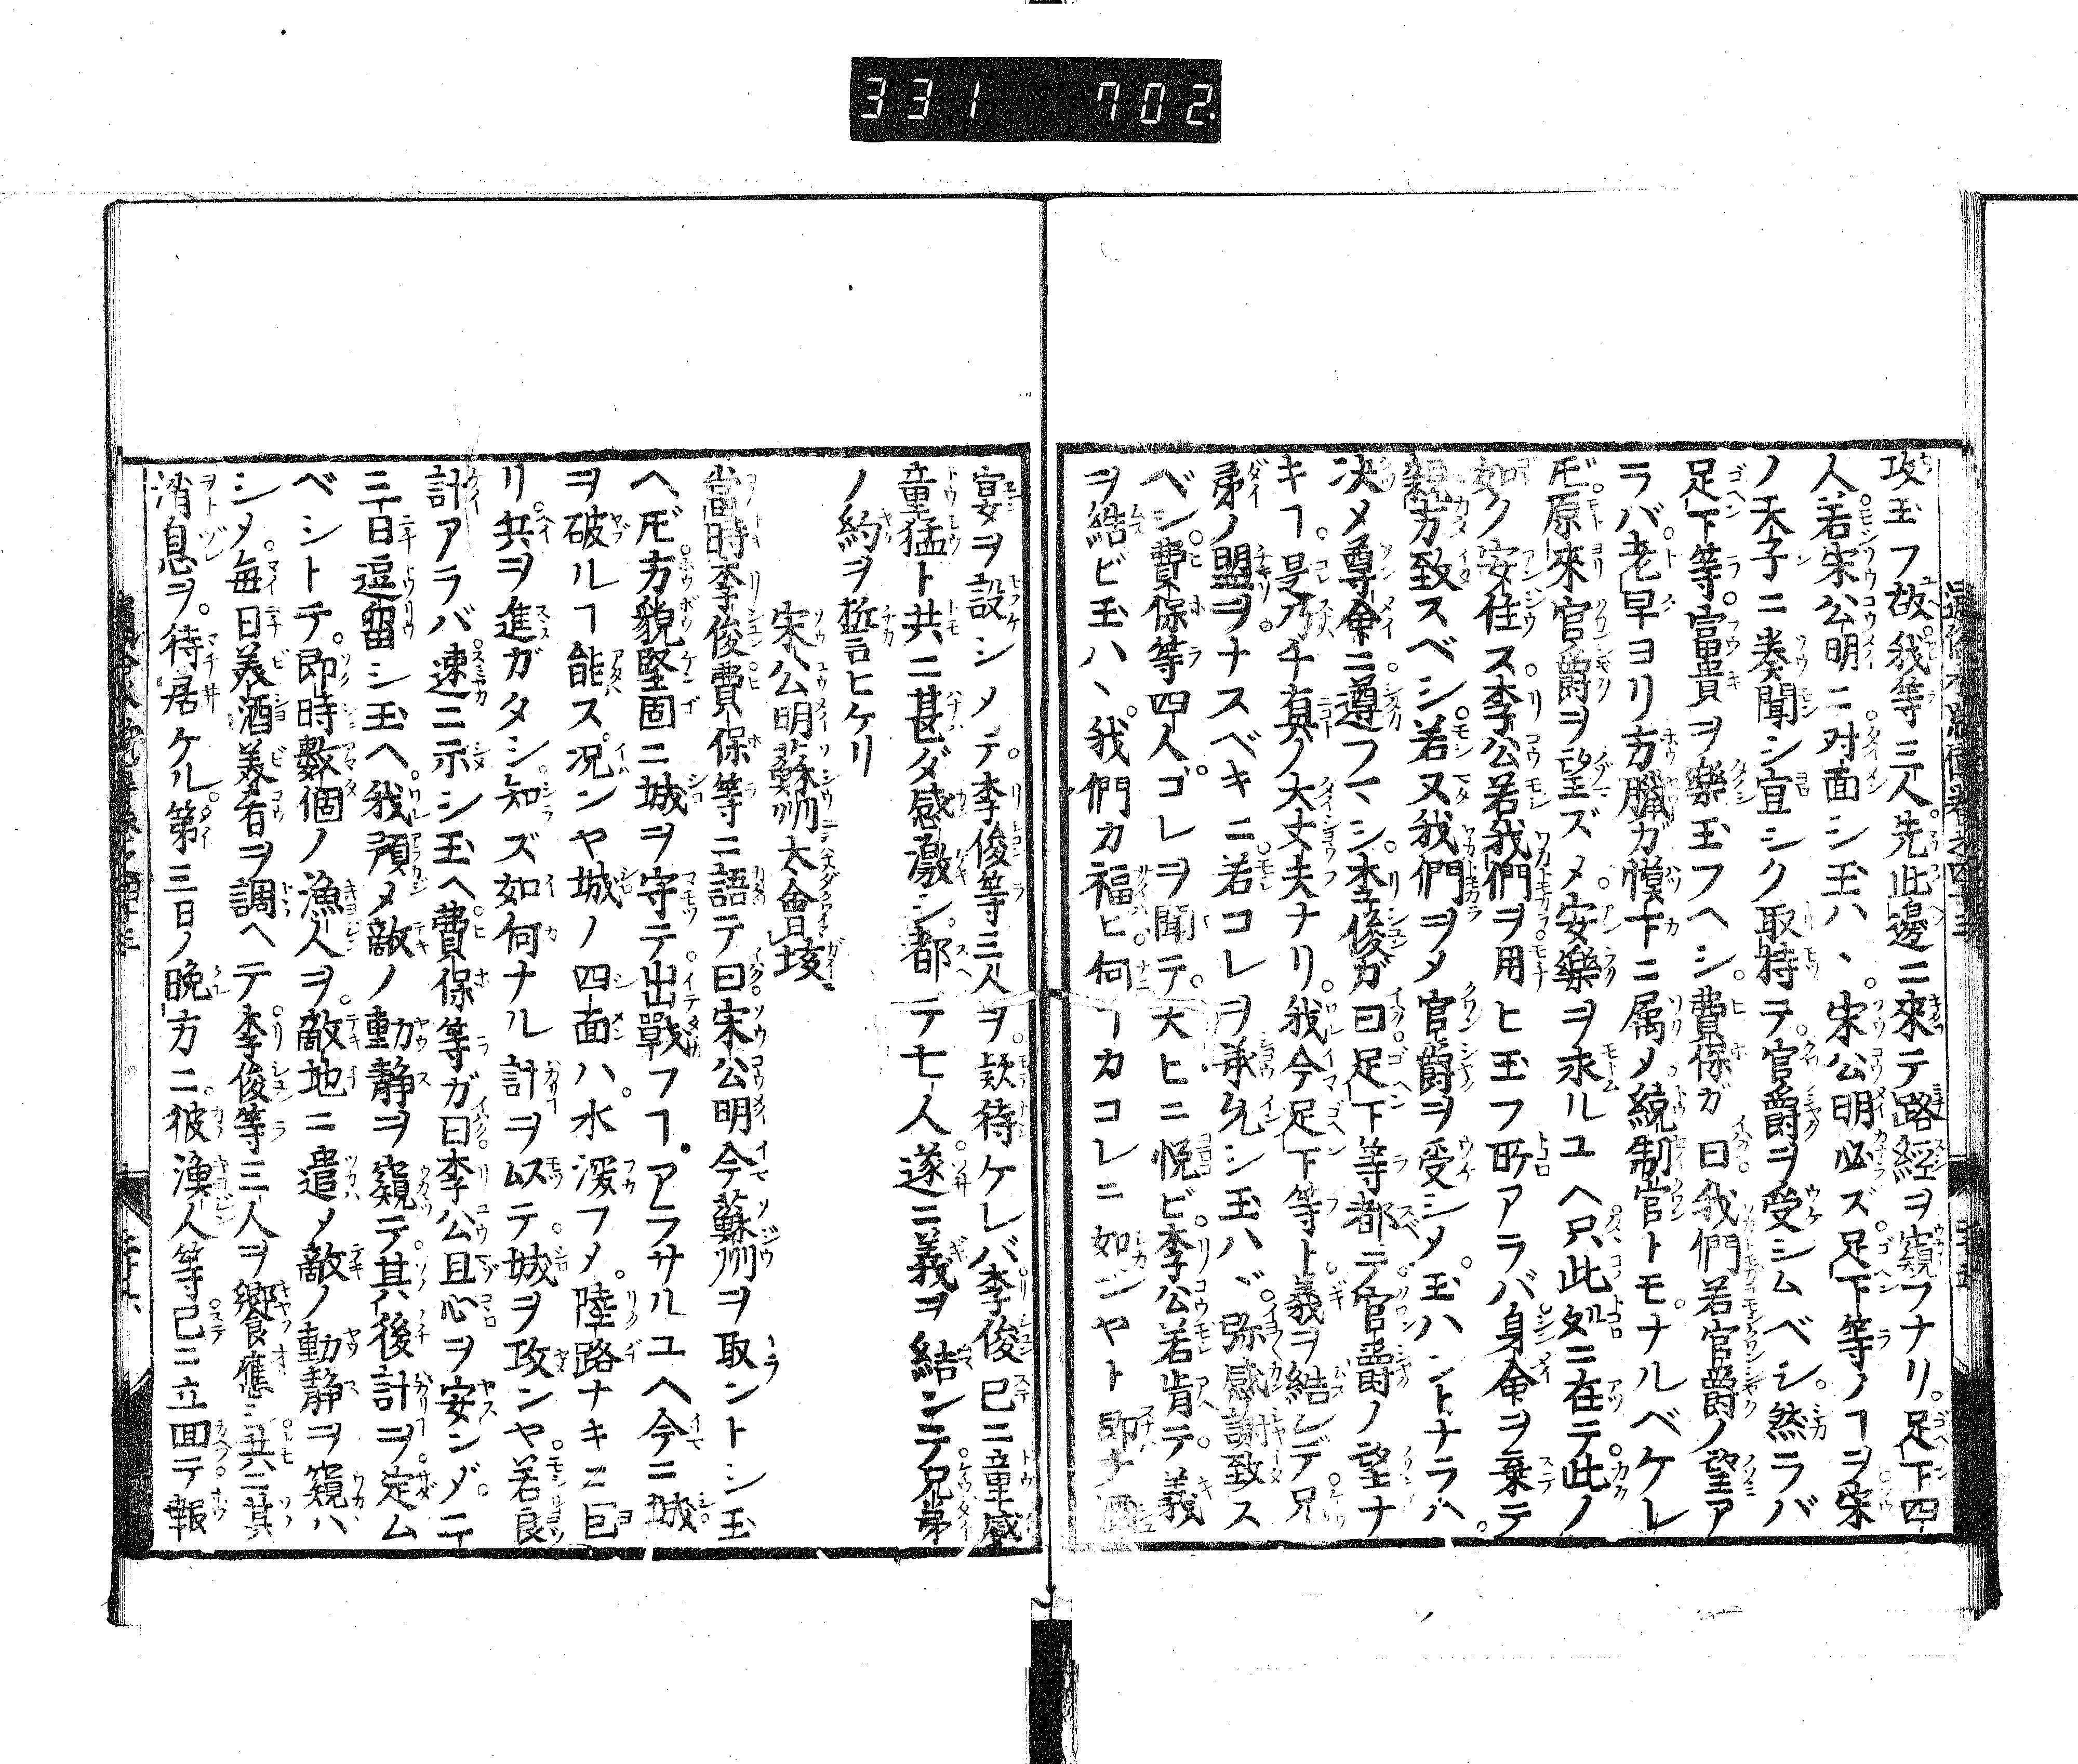 331 702
攻玉フ故我等三人先此邊ニ來テ路經ヲ窺フナリ足下四
人若宋公明ニ対面シ玉ハヽ宋公明必ズ足下等ノヿヲ宋
ノ天子ニ奏聞シ宜シク取持テ官爵ヲ受シムベシ然ラバ
足下等富貴ヲ樂玉フヘシ費保ガ曰我們若官爵ノ望ア
ラバ老早ヨリ方臘ガ幕下ニ属メ統制官トモナルベケレ
𪜈原來官爵ヲ望ズメ安樂ヲ求ルユヘ只此処ニ在テ此ノ
如ク安住ス李公若我們ヲ用ヒ玉フ所アラバ身命ヲ棄テ
親方致スベシ若又我們ヲメ官爵ヲ受シメ玉ハントナラハ
决メ尊命ニ遵フマシ李俊ガ曰足下等都テ官爵ノ望ナ
キヿ是乃チ真ノ大丈夫ナリ我今足下等ト義ヲ結ンデ兄
弟ノ盟ヲナスベキニ若コレヲ承允シ玉ハヾ弥感謝致ス
ベシ費保等四人コレヲ聞テ大ヒニ悦ビ李公若肯テ義
ヲ結ビ玉ハヽ我們カ福ヒ何ヿカコレニ如ンヤト即チ酒
宴ヲ設シメテ李俊等三人ヲ欵待ケレバ李俊已ニ童威
童猛ト共ニ甚ダ感激シ都テ七人遂ニ義ヲ結ンデ兄弟
ノ約ヲ誓ヒケリ
宋公明蘇州大會垓
當時李俊費保等ニ語テ曰宋公明今蘇州ヲ取ントシ玉
ヘ𪜈方貌堅固ニ城ヲ守テ出戰フヿアラサルユヘ今ニ城
ヲ破ルヿ能ス况ンヤ城ノ四面ハ水深フメ陸路ナキニ巨
リ兵ヲ進ガタシ知ズ如何ナル計ヲ以テ城ヲ攻ンヤ若良
計アラバ速ニ示シ玉ヘ費保等ガ曰李公且心ヲ安ンジ二
三日逗留シ玉ヘ我預メ敵ノ動静ヲ窺テ其後計ヲ定ム
ベシトテ即時數個ノ漁人ヲ敵地ニ遣メ敵ノ動静ヲ窺ハ
シメ毎日美酒美肴ヲ調ヘテ李俊等三人ヲ饗應シ共ニ其
消息ヲ待居ケル第三日ノ晩方ニ彼漁人等已ニ立回テ報